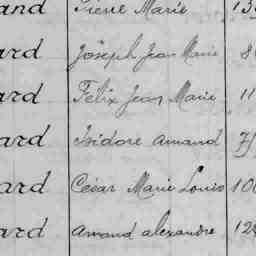 and Pierre Marie 13
ard Joseph Jean Marie 8
ard Félix Jean Marie 11
ard Isidore Amand 7
ard César Marie Louis 10
ard Amand alexandre 12